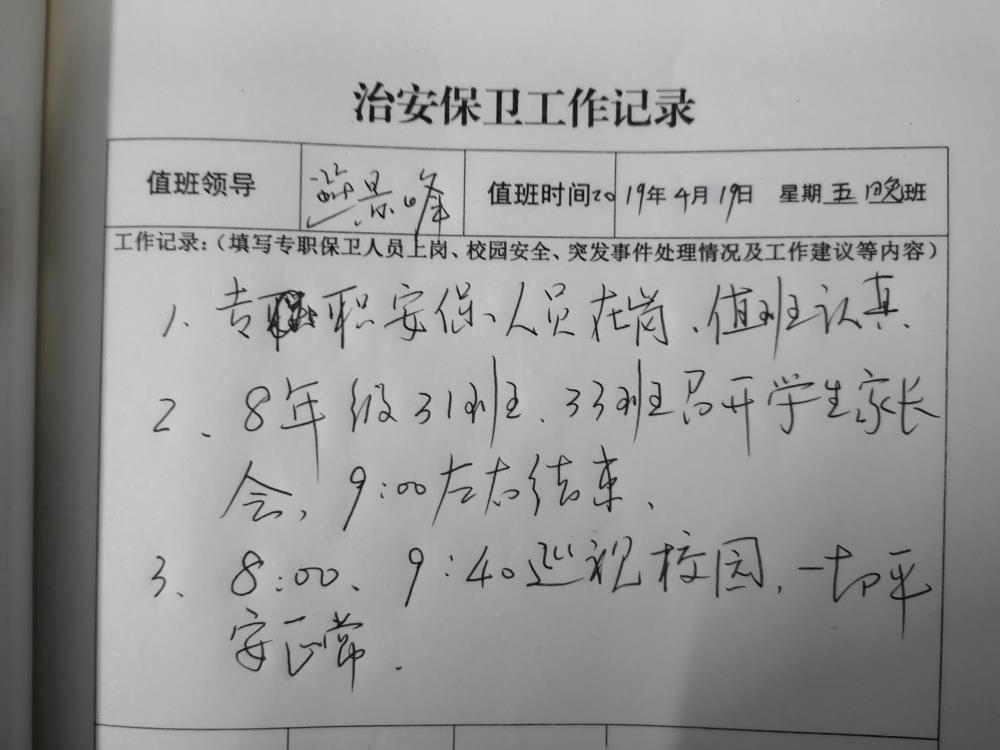 治安保卫工作记录
值班领导 值班时间2019年4月19日 星期五晚班
工作记录:(填写专职保卫人员上岗、校园安全、突发事件处理情况及工作建议等内容)
1、专职安保人员在岗、值班认真.
2、8年级31班、33班召开学生家长
会、9:00左右结束、
3、8:00、9:40巡视校园,一切平
安正常.